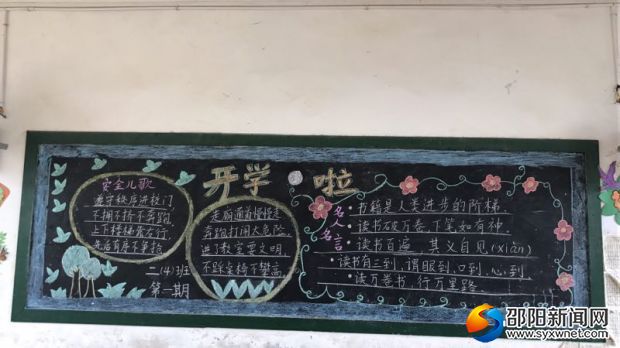 开学啦
安全儿歌
遵守秩序进校门
不拥不挤不奔跑
上下楼梯靠右行
先后有序不争抢
二(4)班
第一期
走廊通道慢慢走
奔跑打闹太危险
进门教室要文明
不踩桌椅不攀高
名人名言
·书籍是人类进步的阶梯.
·读书破万卷,下笔如有神.
·读书百遍 其义自见(xiàn)
·读书有三到,谓眼到,口到,心到.
·读万卷书,行万里路.
邵阳新闻网
www.syxwnet.com